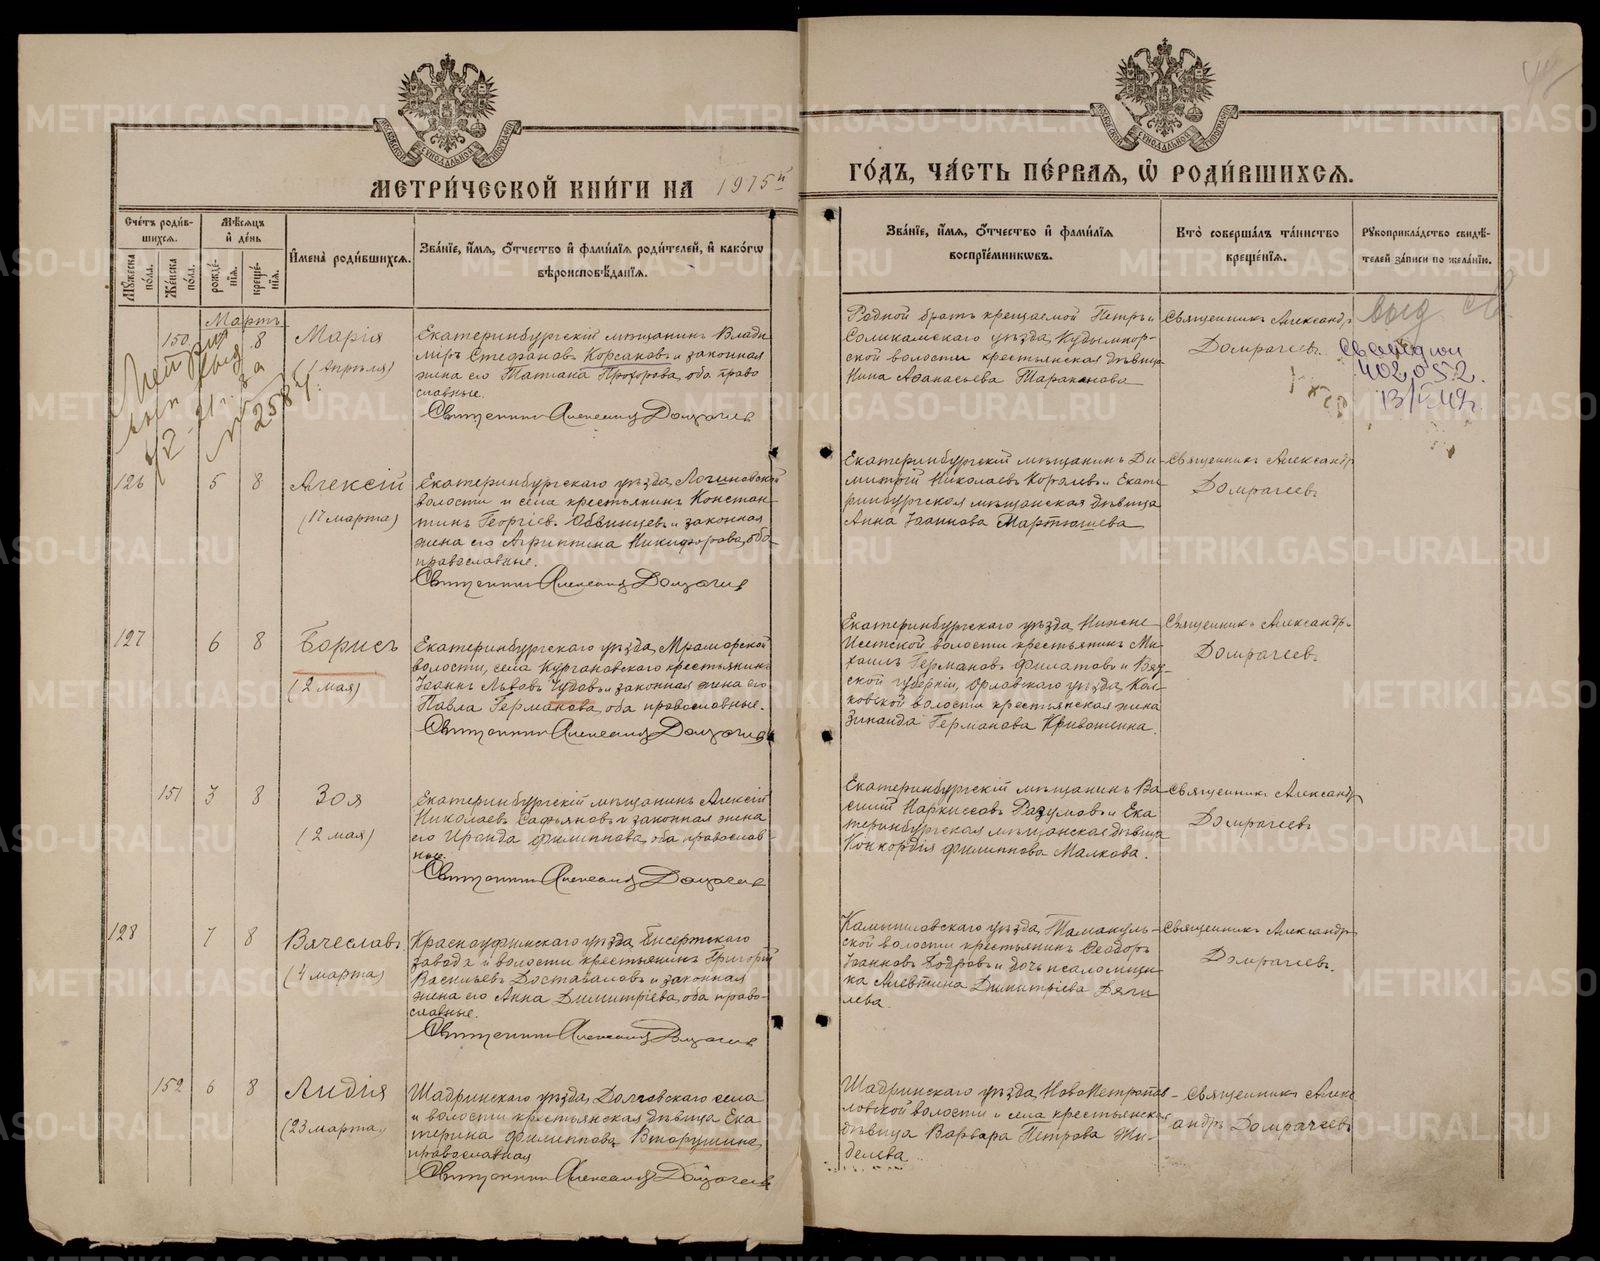 МЕТРИ́ЧЕСКОЙ КНИ́ГИ НА 1915й
ГО́ДЪ, ЧА́СТЬ ПЕ́РВАѦ, Ѡ҆ РОДИ́ВШИХСѦ.
Сче́тъ роди́в-
шихсѧ.
Мѣ́сѧцъ
и҆ де́нь
И҆мена̀ роди́вшихсѧ.
Зва́нїе, и҆́мѧ, ѻ҆́тчество и҆ фами́лїѧ роди́телей, и҆ како́гѡ
вѣроисповѣ́данїѧ.
Мꙋ́жеска
по́ла.
Же́нска
по́ла.
рожде́-
нїѧ.
креще́-
нїѧ.
Зва́нїе, и҆́мѧ, ѻ҆́тчество и҆ фами́лїѧ
воспрїе́мникѡвъ.
Кто̀ соверша́лъ та́инство
креще́нїѧ.
Рꙋкоприкла́дство свидѣ́-
телей за́писи по жела́нїю.
Мартъ
150 8
Марія
(1 Апрѣля)
Екатеринбургскій мѣщанинъ Влади
міръ Стефановъ Корсаковъ и законная
жена его Татіана Прохорова, оба право
славные.
Священникъ Александръ Домрачевъ
Родной братъ крещаемой Петръ и
Соликамскаго уѣзда, Кудымкор-
ской волости крестьянская дѣвица
Нина Аѳанасьева Тараканова
Священникъ Александръ
Домрачевъ.
выд. св
402052.
126 5 8
Алексій
(17 марта)
Екатеринбургскаго уѣзда, Логиновской
волости и села крестьянинъ Констан-
тинъ Георгіевъ Обвинцевъ и законная
жена его Агриппина Никифорова, оба
православные.
Священникъ Александръ Домрачевъ
Екатеринбургскій мѣщанинъ Ди-
митрій Николаевъ Королевъ и Екате
ринбургская мѣщанская дѣвица
Анна Іоаннова Мартюшева
Священникъ Александръ
Домрачевъ
127 6 8
Борисъ
(2 мая)
Екатеринбургскаго уѣзда, Мраморской
волости, села Кургановскаго крестьянинъ
Іоаннъ Львовъ Чудовъ и законная жена его
Павла Германова, оба православные.
Священникъ Александръ Домрачевъ
Екатеринбургскаго уѣзда Нижне-
Исетской волости крестьянинъ Ми-
хаилъ Германовъ Филатовъ и Вят-
ской губерніи, Орловскаго уѣзда,
ковской волости крестьянская жена
Зинаида Германова Кривошеина.
Священникъ Александръ
Домрачевъ
151 3 8
Зоя
(2 мая)
Екатеринбургскій мѣщанинъ Алексій
Николаевъ Сафьяновъ и законная жена
его Ираида Филиппова, оба православ-
ные.
Священникъ Александръ Домрачевъ
Екатеринбургскій мѣщанинъ Ва-
силій Наркиссовъ Разумовъ и Ека
теринбургская мѣщанская дѣвица
Конкордія Филиппова Малкова.
Священникъ Александръ
Домрачевъ
128 7 8
Вячеславъ
(4 марта)
Красноуфимскаго уѣзда, Бисертскаго
завода и волости крестьянинъ Григорій
Васильевъ Доставаловъ и законная
жена его Анна Димитріева, оба право-
славные.
Священникъ Александръ Домрачевъ
Камышловскаго уѣзда, Тамакуль-
ской волости крестьянинъ Ѳеодоръ
Іоанновъ Бодровъ и дочь псаломщи-
ка Алевтина Димитріева Дяги
лева.
Священникъ Александръ
Домрачевъ.
152 6 8
Лидія
(23 марта)
Шадринскаго уѣзда, Долговскаго села
и волости крестьянская дѣвица Ека
терина Филиппова Вторушина,
православная
Священникъ Александръ Домрачевъ
Шадринскаго уѣзда, Новопетропав
ловской волости и села крестьянская
дѣвица Варвара Петрова Жи-
делева
Священникъ Алекс
андръ Домрачевъ
METRIKI.GASO-URAL.RU